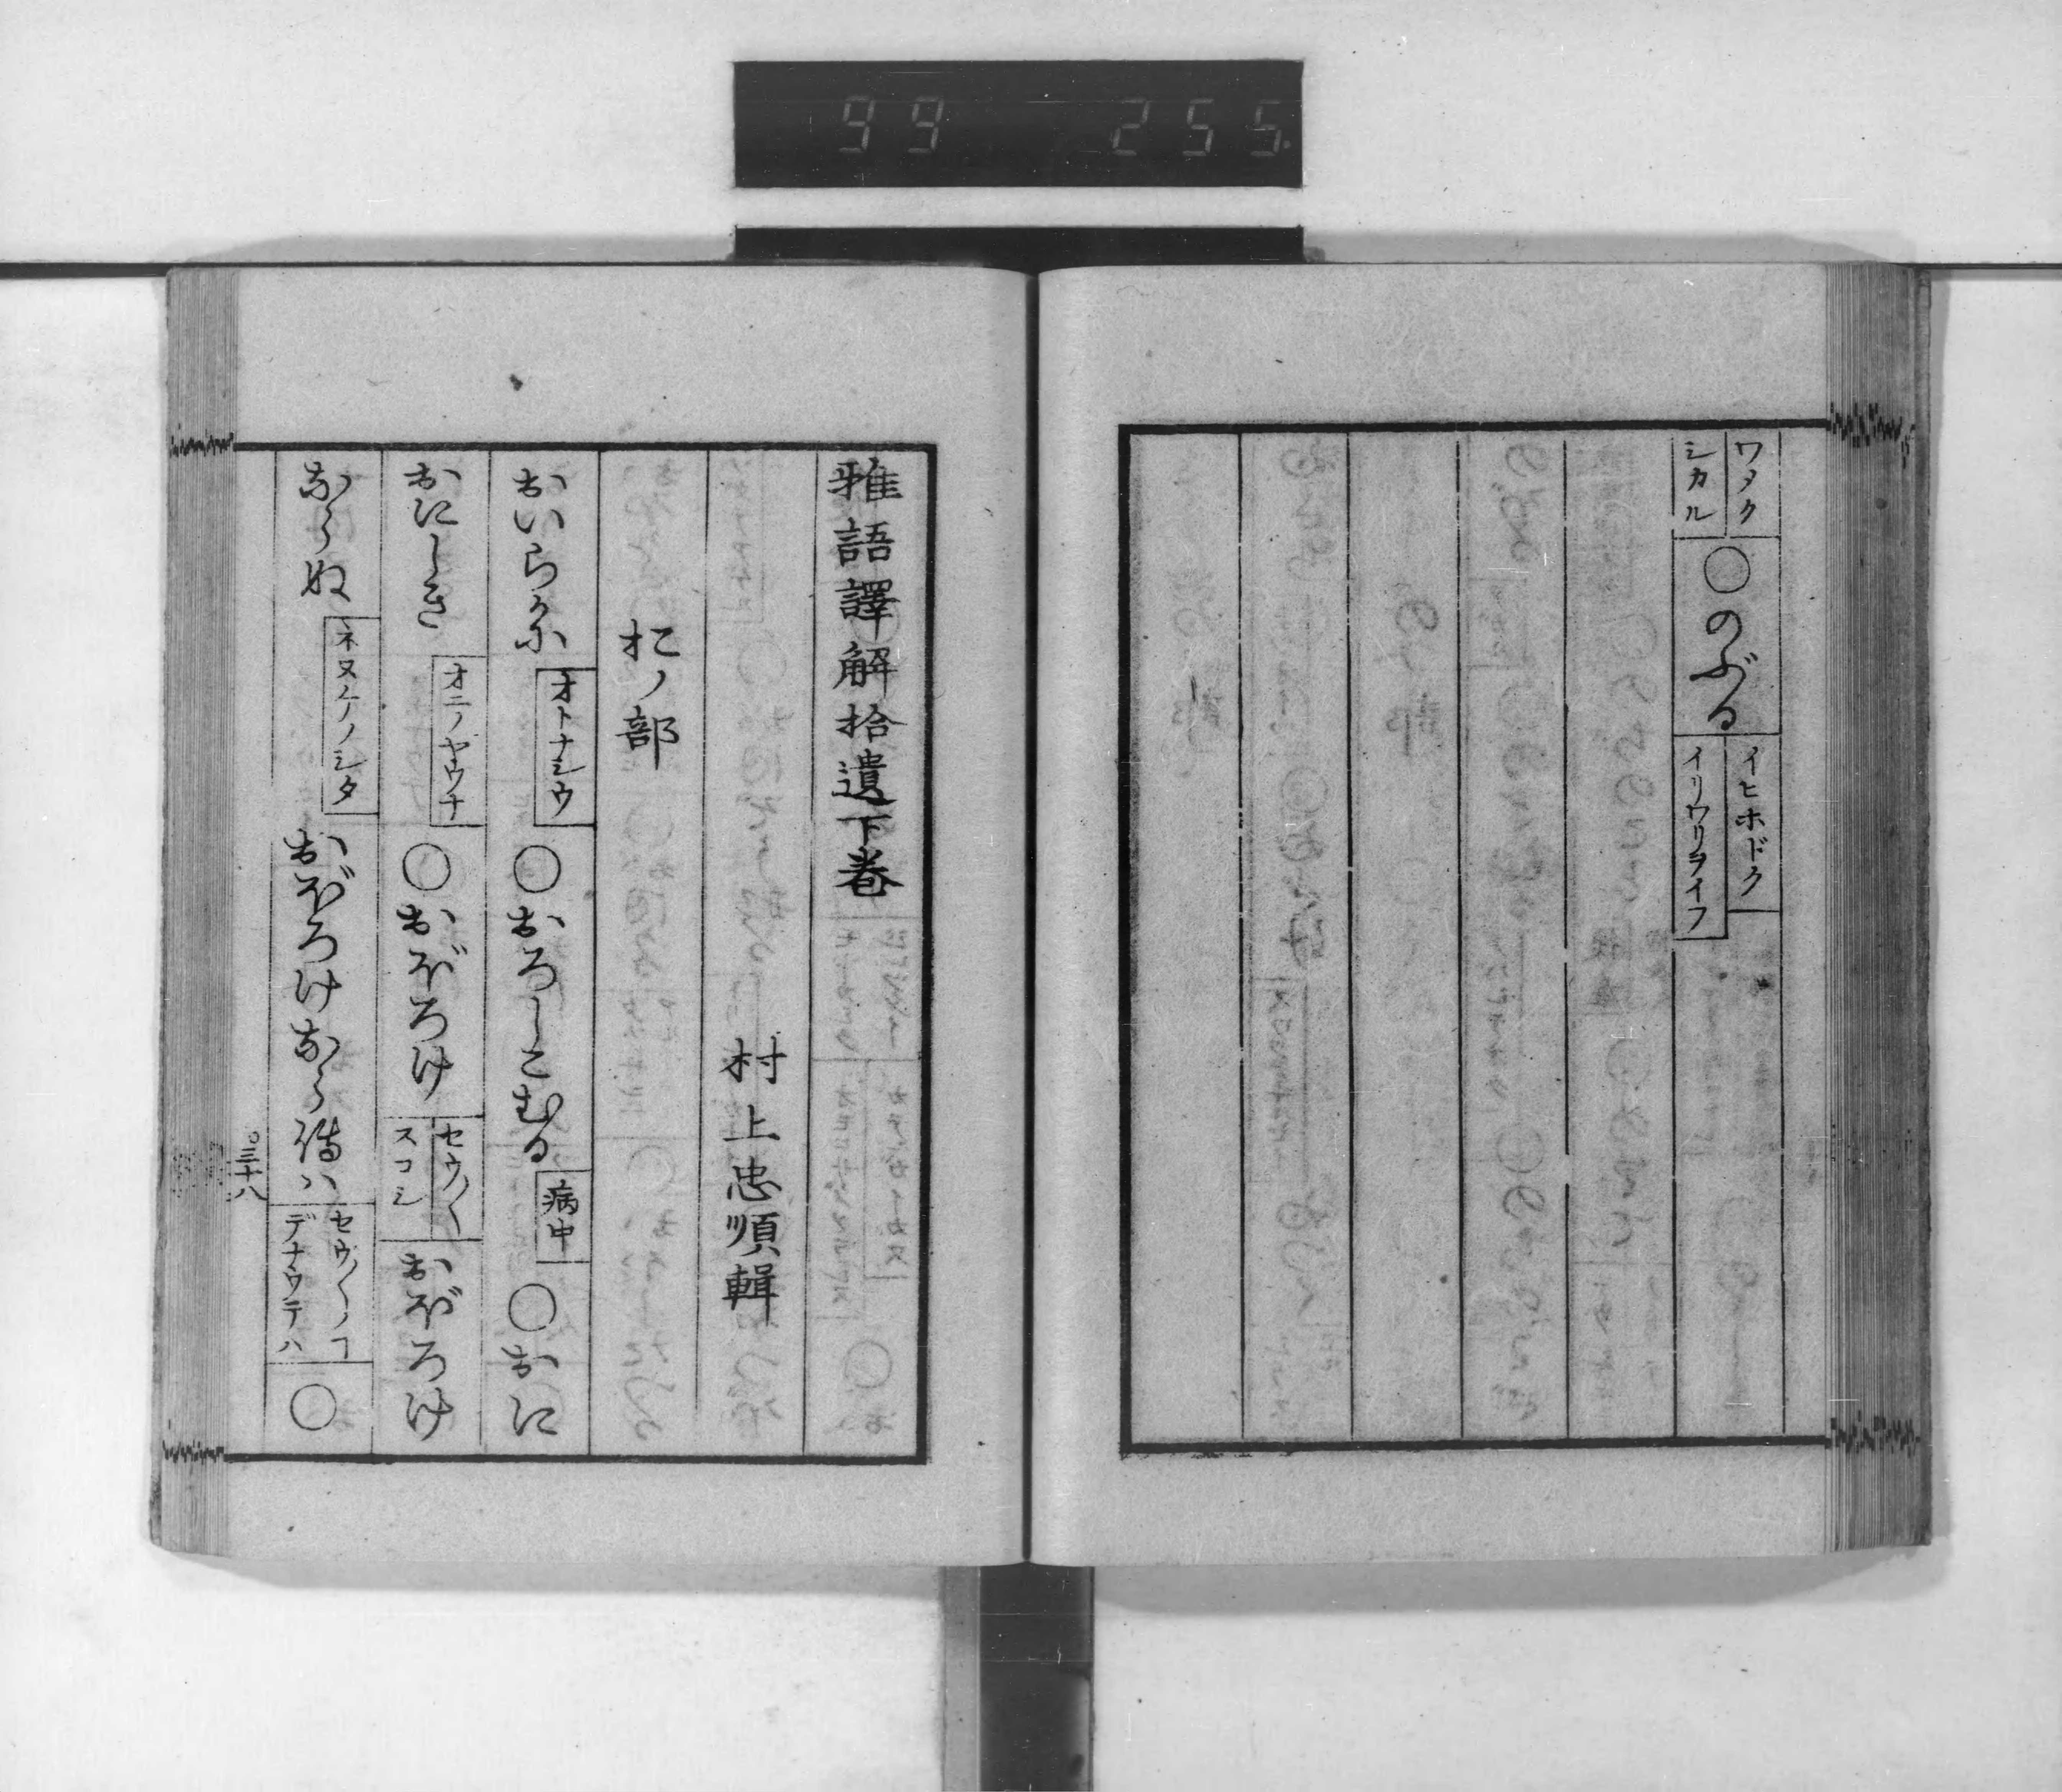 99 255
ワメク
シカル
○のぶる
イヒホドク
イリワリヲイフ
雅語譯解拾遺下巻
村上忠順輯
オノ部
おいらかに オトナシウ ○おろしこむる 病中 ○おに
おにしき オニノヤウナ ○おぼろけ セウ〳〵 スコシ おぼろけ
ならぬ ネヌケノシタ おぼろけならでハ セウ〳〵ノコ デナウテハ ○
三十八